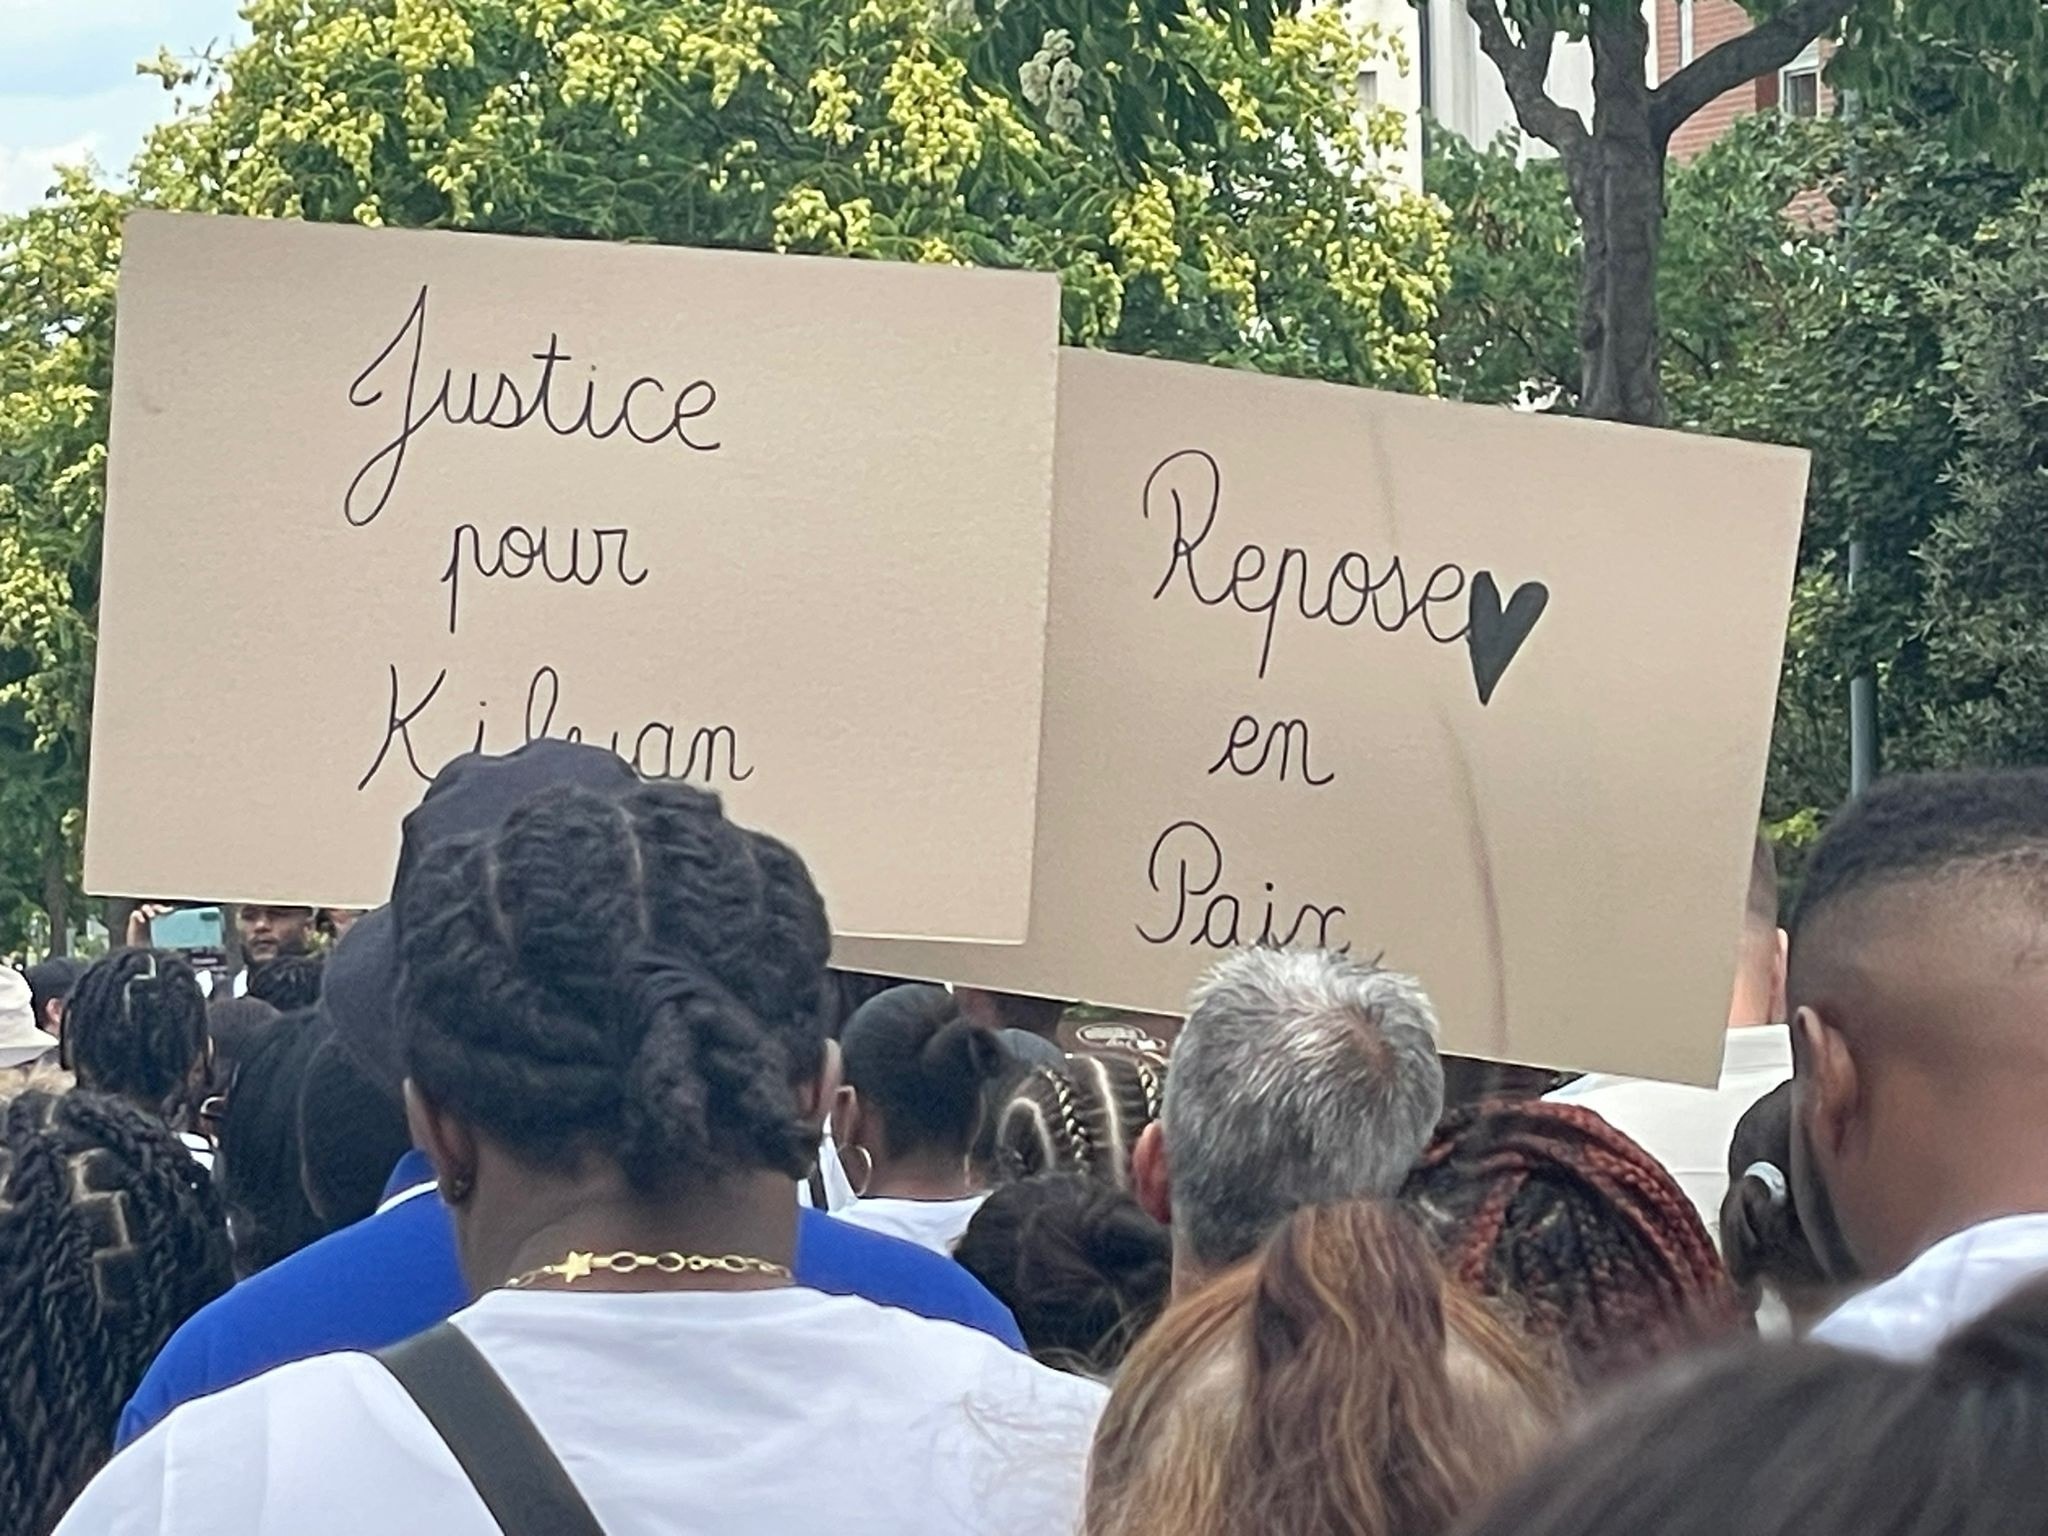 Justice
pour
Kilyan
Repose
en
Paix